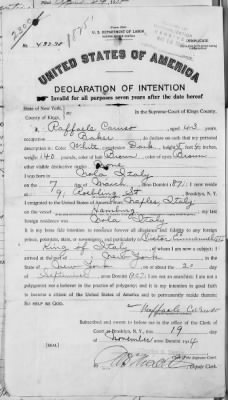 U. S. DEPARTMENT OF LABOR
No.
UNITED STATES OF AMERICA
DECLARATION OF INTENTION
Invalid for all purposes seven years after the date hereof
State of New York,
County of Kings,
In the Supreme Court of Kings County.
I, Raffaele Caruso, aged 43 years,
occupation Baker, do declare on oath that my personal
description is: Color White, complexion Dark, height 5 feet inches,
weight 140 pounds, color of hair Brown, color of eyes Brown
other visible distinctive marks none
I was born in Nola Italy
on the 7 day of March, anno Domini 1871; I now reside
at 79 Roebling St, Brooklyn, N.Y.
I emigrated to the United States of America from Naples Italy
on the vessel Hamburg; my last
foreign residence was Nola Italy
It is my bona fide intention to renounce forever all allegiance and fidelity to any foreign
prince, potentate, state, or sovereignty, and particularly to Victor Emmanuel III
King of Italy, of whom I am now a subject; I
arrived at the port of New York, in the
State of New York, on or about the 20 day
of September, anno Domini; I am not an anarchist; I am not a
polygamist nor a believer in the practice of polygamy; and it is my intention in good faith
to become a citizen of the United States of America and to permanently reside therein:
SO HELP ME GOD.
Raffaele Caruso
Subscribed and sworn to before me in the office of the Clerk of
Court at Brooklyn, N. Y., this 19 day
of November, anno Domini 1914
Clerk of the Supreme Court.
By Deputy Clerk.